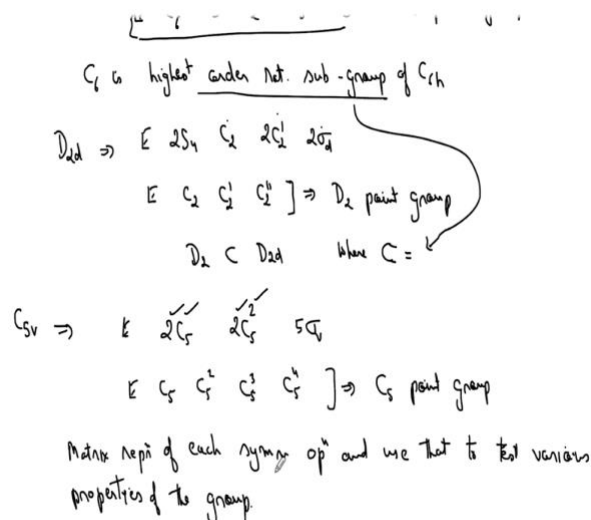 C₆ is highest order rot. sub-group of C₆h
D₂d ⇒ E 2S₄ C₂ 2C₂' 2σd
E C₂ C₂' C₂" ] ⇒ D₂ point group
D₂ ⊂ D₂d where ⊂ =
C₅v ⇒ E 2C₅ 2C₅² 5σv
E C₅ C₅² C₅³ C₅⁴ ] ⇒ C₅ point group
Matrix repⁿ of each symm opⁿ and use that to test various
properties of the group.